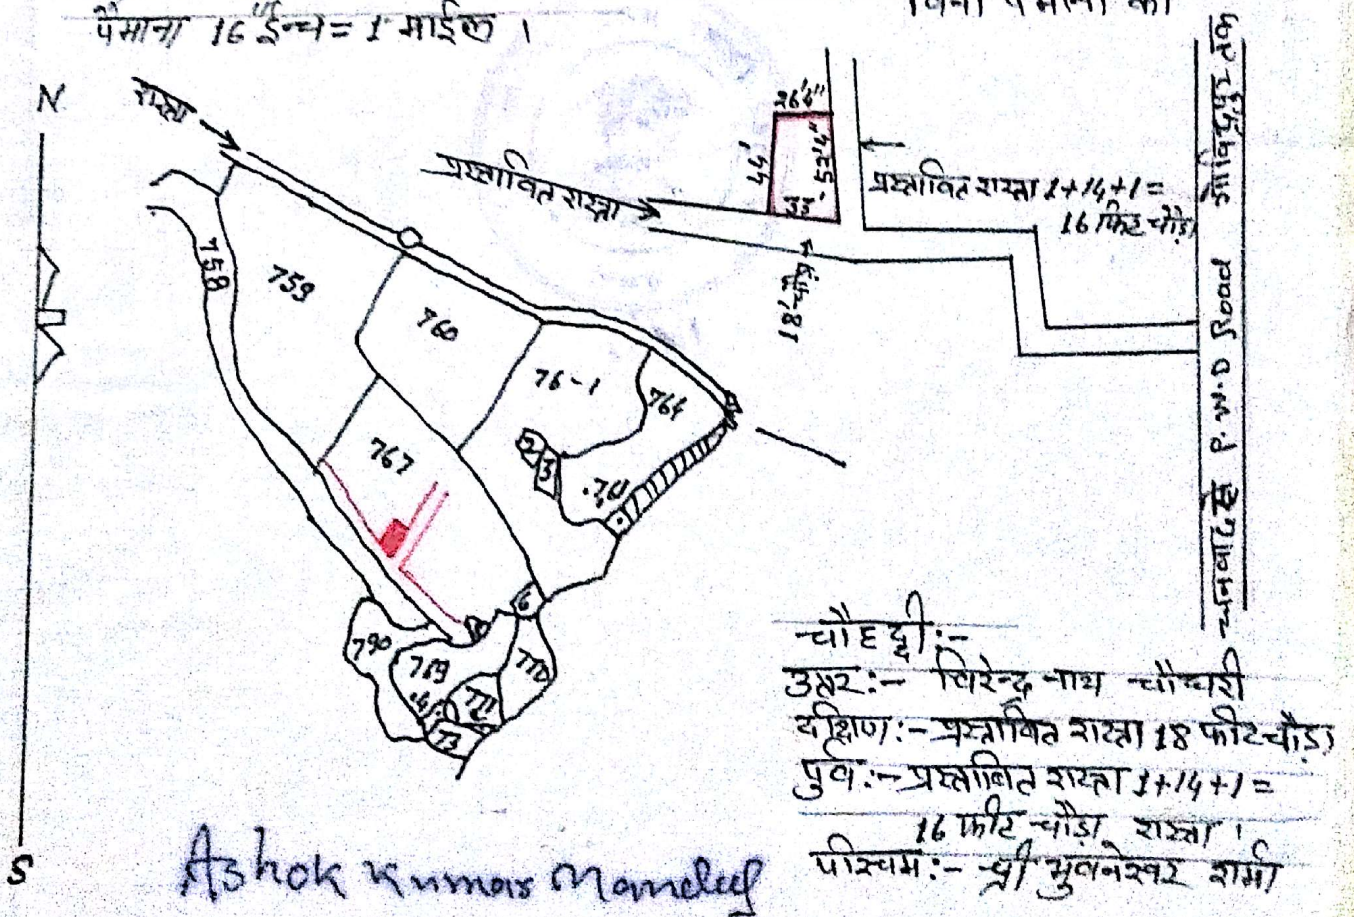 पैमाना 16"ईन्च = 1 माईल ।
बिना पैमाना का
N
रास्ता
प्रस्तावित रास्ता
26'4"
44'
52'4"
33'
18' चौड़ा
प्रस्तावित रास्ता 1+14+1=
16 फिट चौड़ा
धनबाद से P.W.D Road गोविन्दपुर तक
758
759
760
76-1
764
767
2
3
.70
6
790
769
770
771
73
S
चौहद्दी:-
उत्तर:- विरेन्द्र नाथ चौधरी
दक्षिण:- प्रस्तावित रास्ता 18 फीट चौड़ा
पुर्व:- प्रस्तावित रास्ता 1+14+1=
16 फीट चौड़ा रास्ता ।
पश्चिम:- श्री भुवनेश्वर शर्मा
Ashok Kumar Mandal